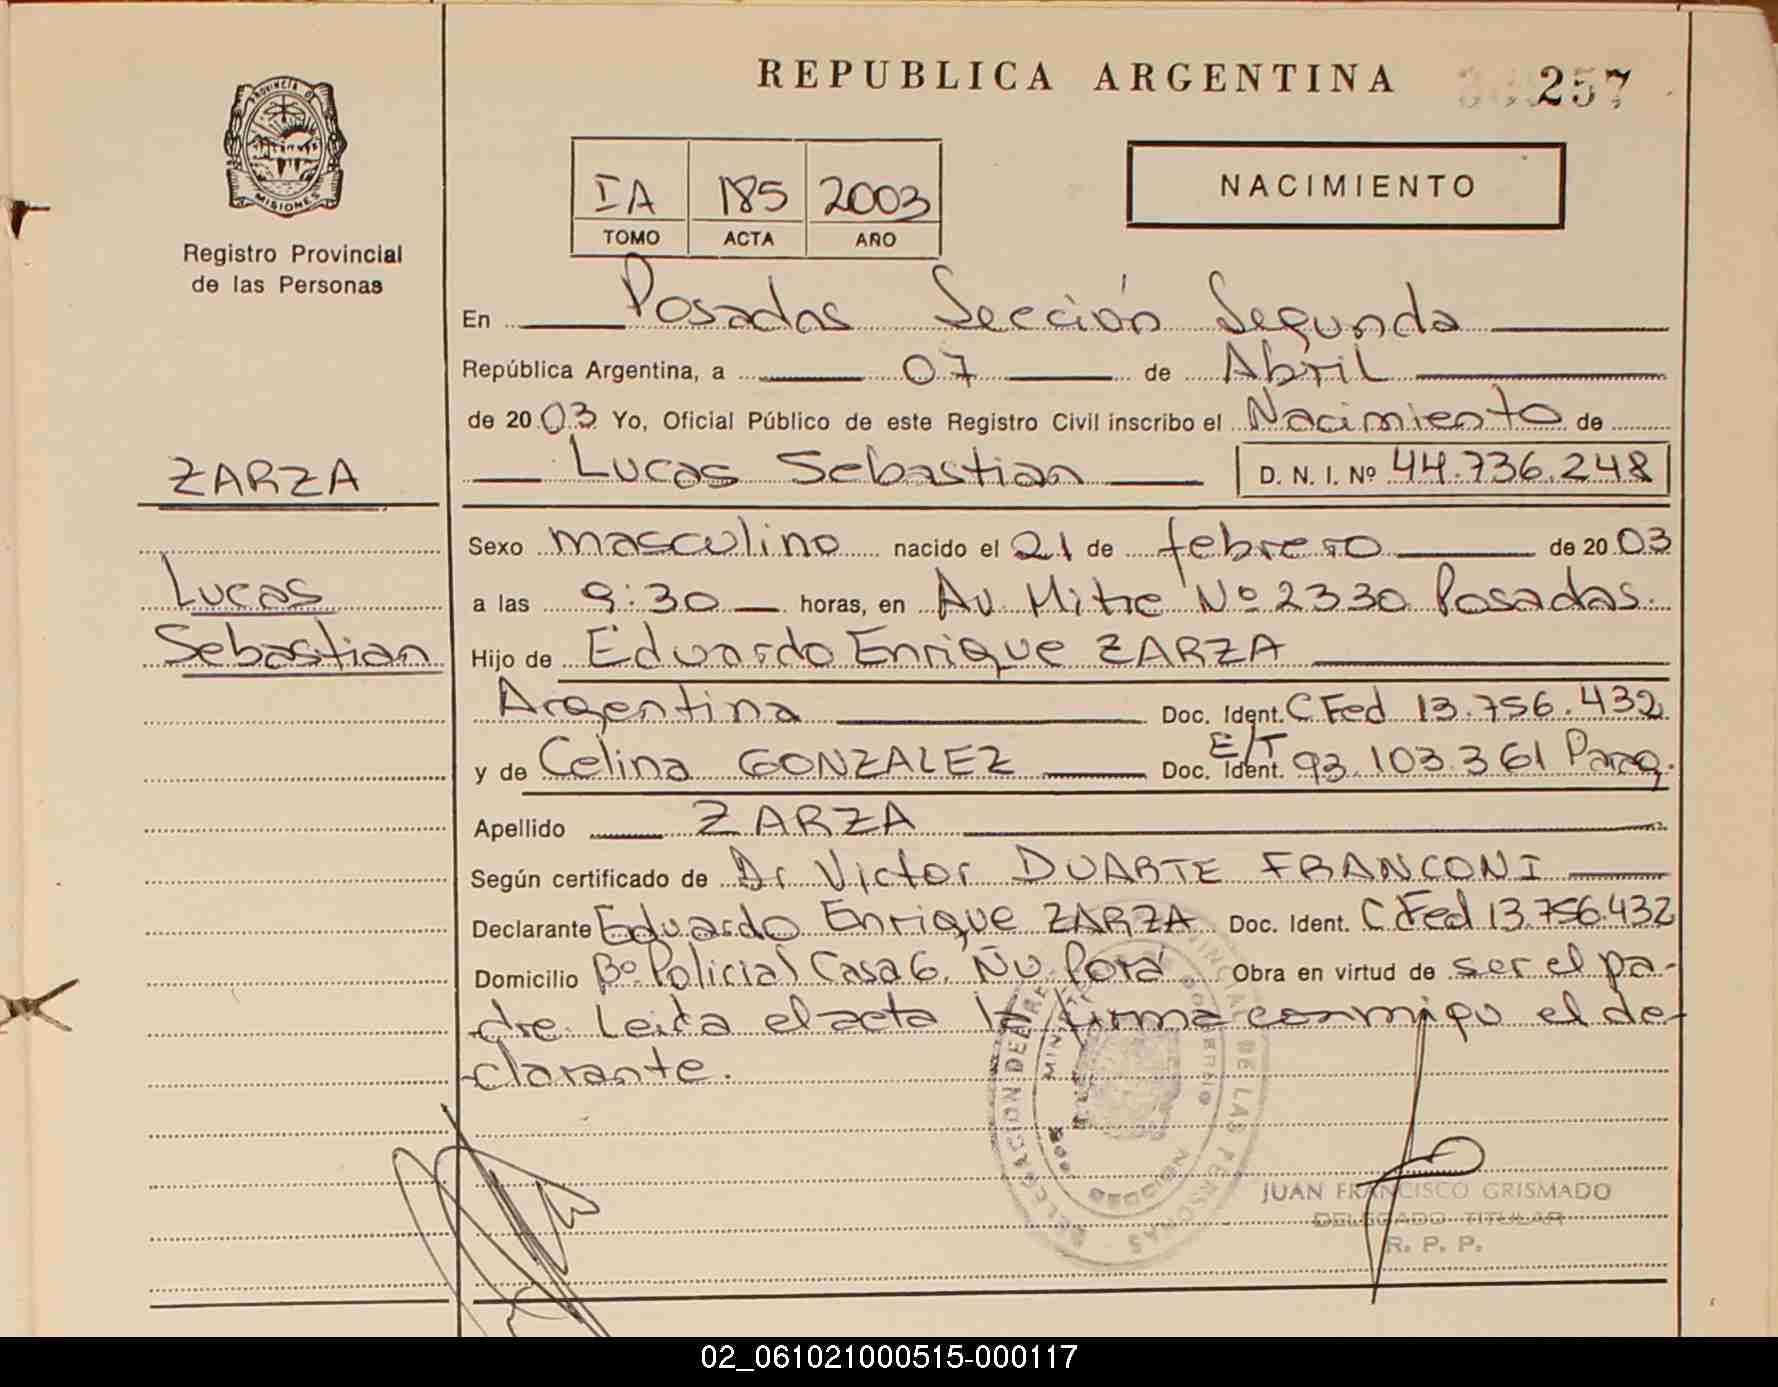 REPUBLICA ARGENTINA 257
PROVINCIA DE
MISIONES
Registro Provincial
de las Personas
IA 185 2003
TOMO ACTA AÑO
NACIMIENTO
En Posadas Sección Segunda
República Argentina, a 07 de Abril
de 2003 Yo, Oficial Público de este Registro Civil inscribo el Nacimiento de
Lucas Sebastian D. N. I. Nº 44.736.248
ZARZA
Lucas
Sebastian
Sexo masculino nacido el 21 de febrero de 2003
a las 9:30 horas, en Av. Mitre Nº 2330 Posadas.
Hijo de Eduardo Enrique ZARZA
Argentina Doc. Ident. C. Fed 13.756.432
y de Celina GONZALEZ Doc. Ident. E/T 93.103.361 Parag.
Apellido ZARZA
Según certificado de Dr Victor DUARTE FRANCONI
Declarante Eduardo Enrique ZARZA Doc. Ident. C. Fed 13.756.432
Domicilio Bº Policial Casa 6. Ñu Porá Obra en virtud de ser el pa-
dre. Leída el acta la firma conmigo el de-
clarante.
JUAN FRANCISCO GRISMADO
DELEGADO TITULAR
R. P. P.
02_061021000515-000117